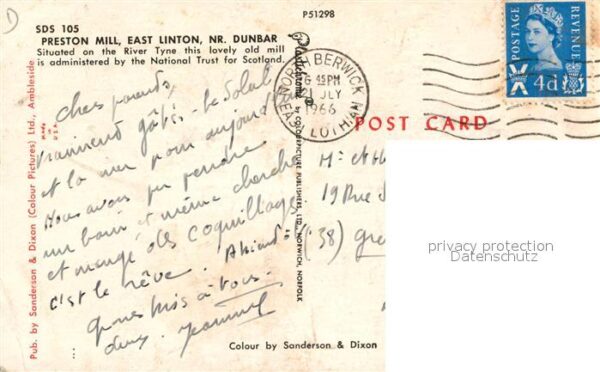 P51298
SDS 105
PRESTON MILL, EAST LINTON, NR. DUNBAR
Situated on the River Tyne this lovely old mill
is administered by the National Trust for Scotland.
Pub. by Sanderson & Dixon (Colour Pictures) Ltd., Ambleside
MADE IN U.S.A.
Plastichrome ®
by COLOURPICTURE PUBLISHERS, LTD., NORWICH, NORFOLK
NORTH BERWICK
6 45PM
21 JLY
1966
EAST LOTHIAN
POSTAGE
REVENUE
4d
POST CARD
Chers parents,
vraiment gâtés. Le Soleil
et la mer pour aujourd'hui
Nous avons pu prendre
un bain et même chercher
et mangé des coquillages.
c'est le rêve. A bientôt
à vous
M. et
19 Rue
(38) Gre
Colour by Sanderson & Dixon
privacy protection
Datenschutz